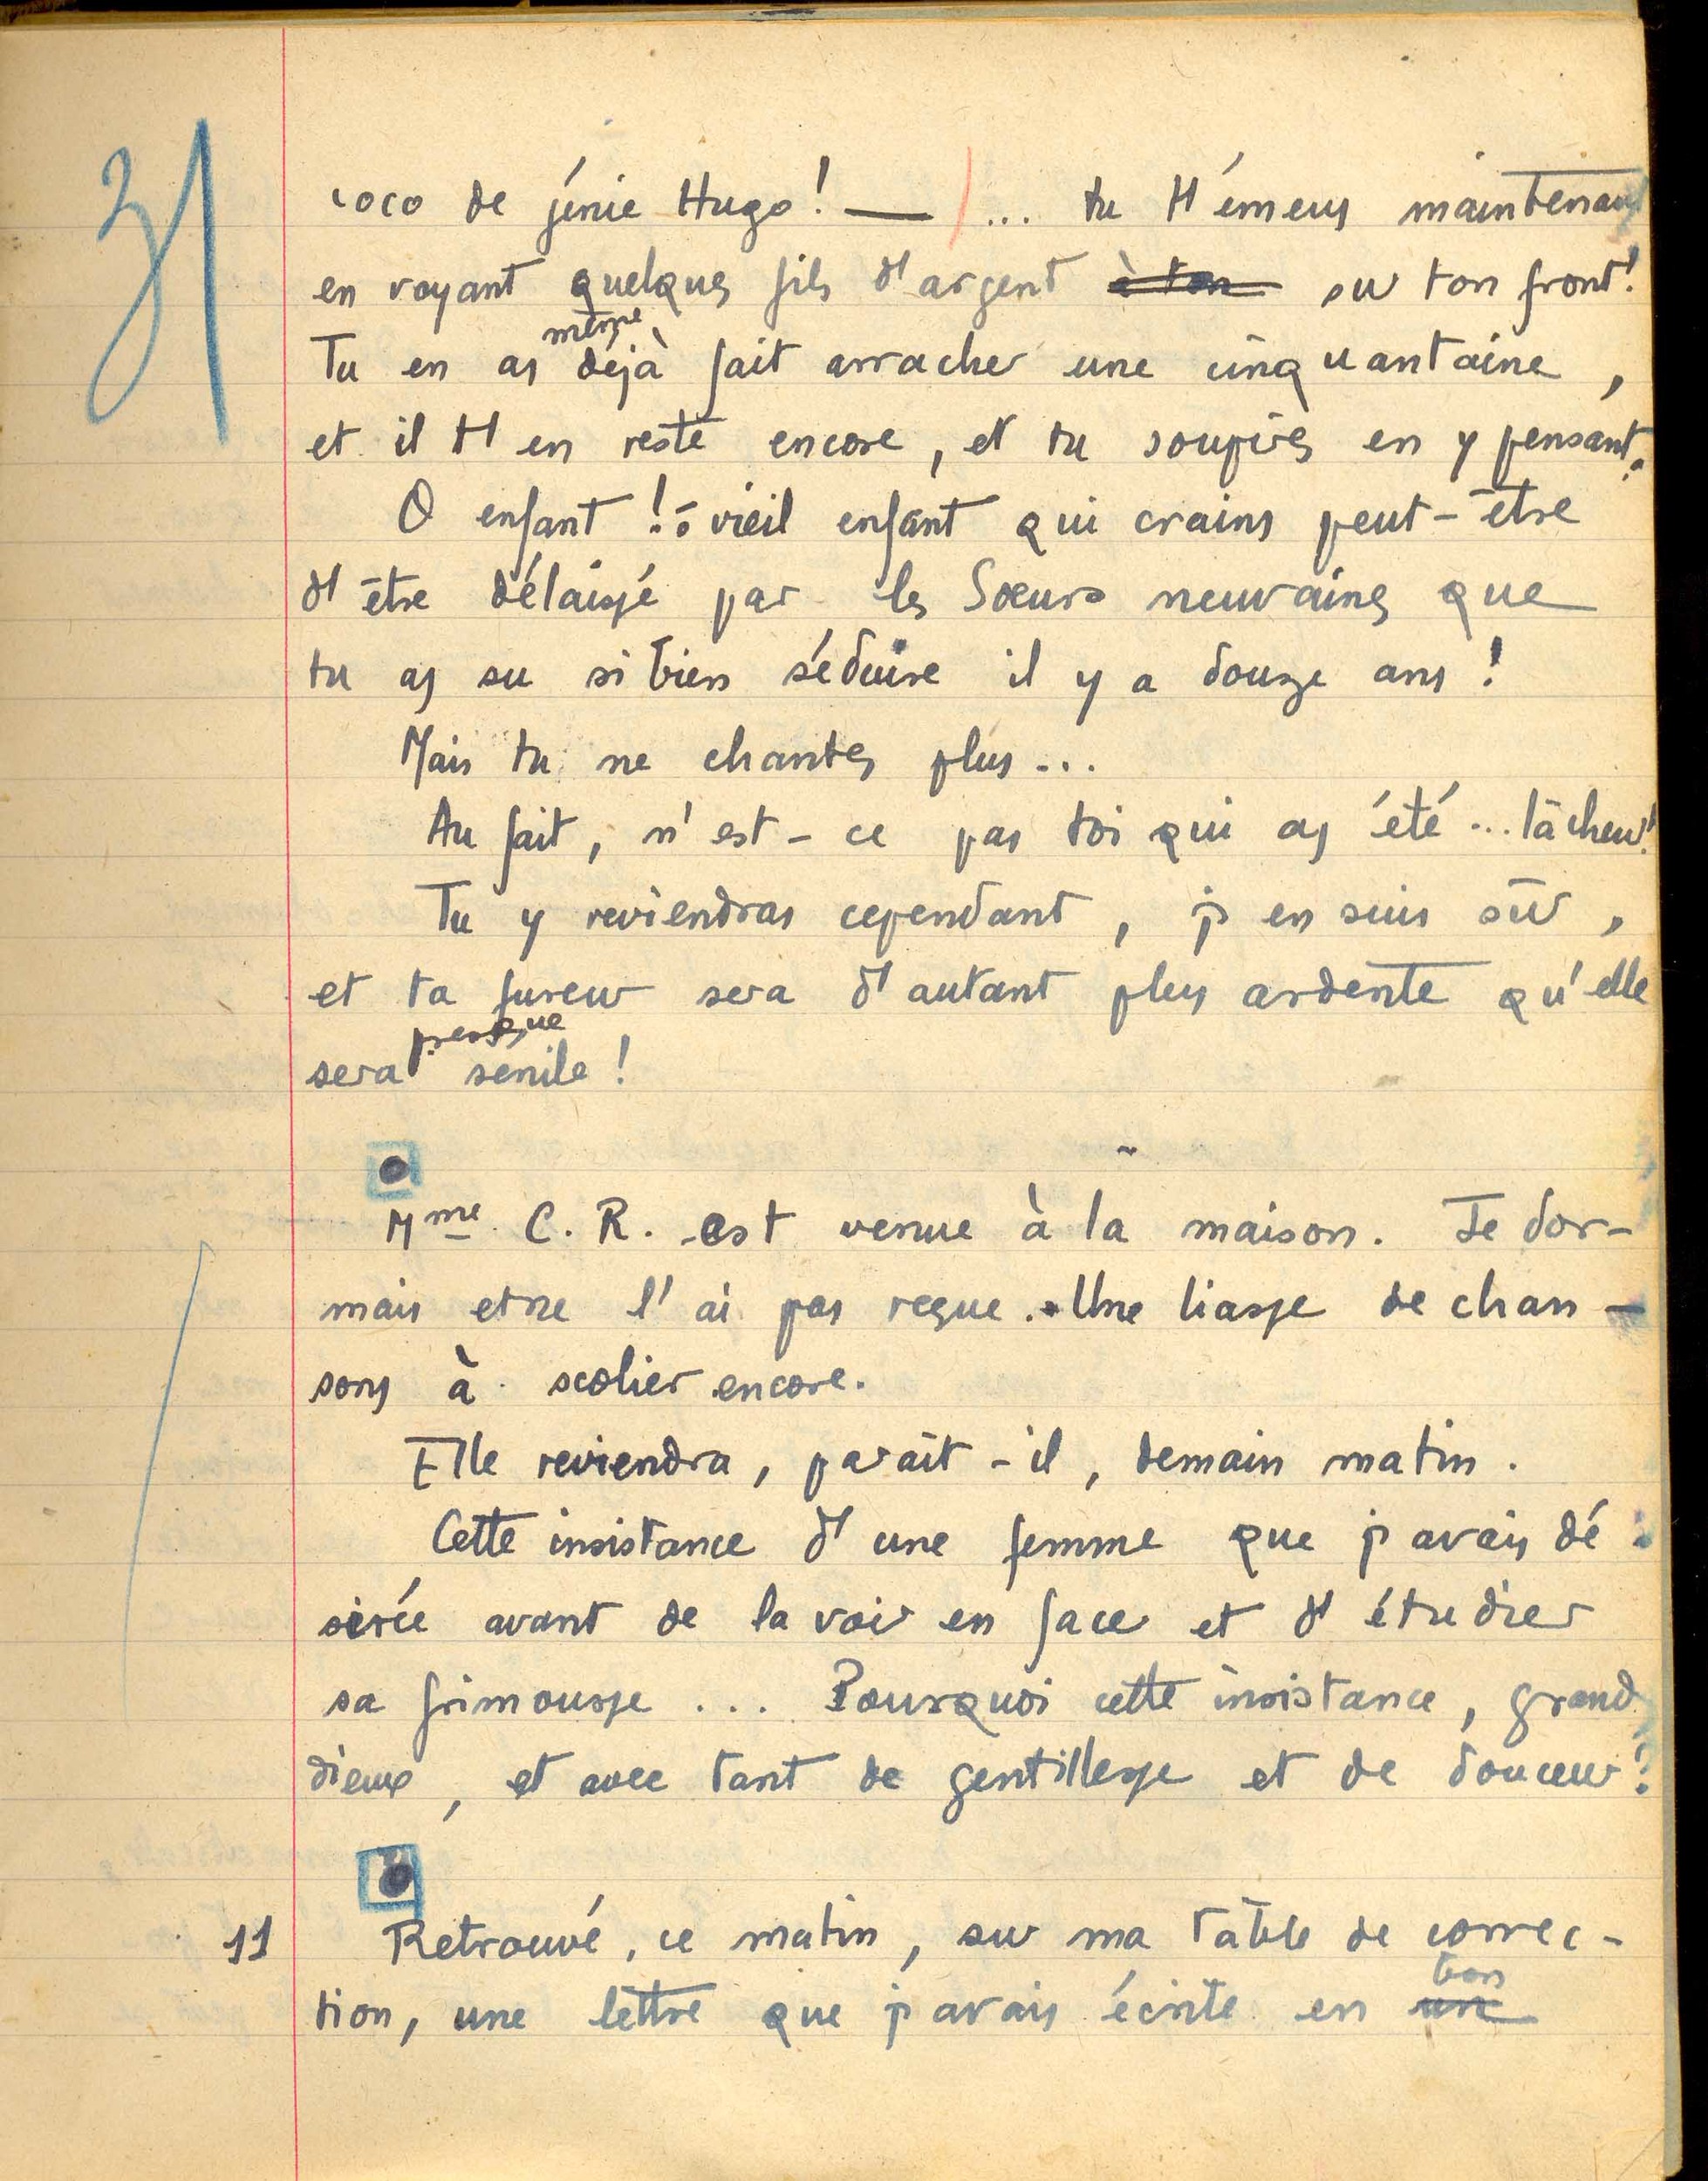 31
coco de génie Hugo! — ... tu t'émeus maintenant
en voyant quelques fils d'argent à ton sur ton front!
même
Tu en as déjà fait arracher une cinquantaine,
et il t'en reste encore, et tu soupires en y pensant.
O enfant! ô vieil enfant qui crains peut-être
d'être délaissé par les Sœurs neuvaines que
tu as su si bien séduire il y a douze ans!
Mais tu ne chantes plus...
Au fait, n'est-ce pas toi qui as été... lâcheur!
Tu y reviendras cependant, j'en suis sûr,
et ta fureur sera d'autant plus ardente qu'elle
presque
sera sénile!
Mme C. R. est venue à la maison. Je dor-
mais et ne l'ai pas reçue. Une liasse de chan-
sons à scolier encore.
Elle reviendra, paraît-il, demain matin.
Cette insistance d'une femme que j'avais dé-
sirée avant de la voir en face et d'étudier
sa frimousse ... Pourquoi cette insistance, grand
dieux, et avec tant de gentillesse et de douceur?
11 Retrouvé, ce matin, sur ma table de correc-
bon
tion, une lettre que j'avais écrite en un